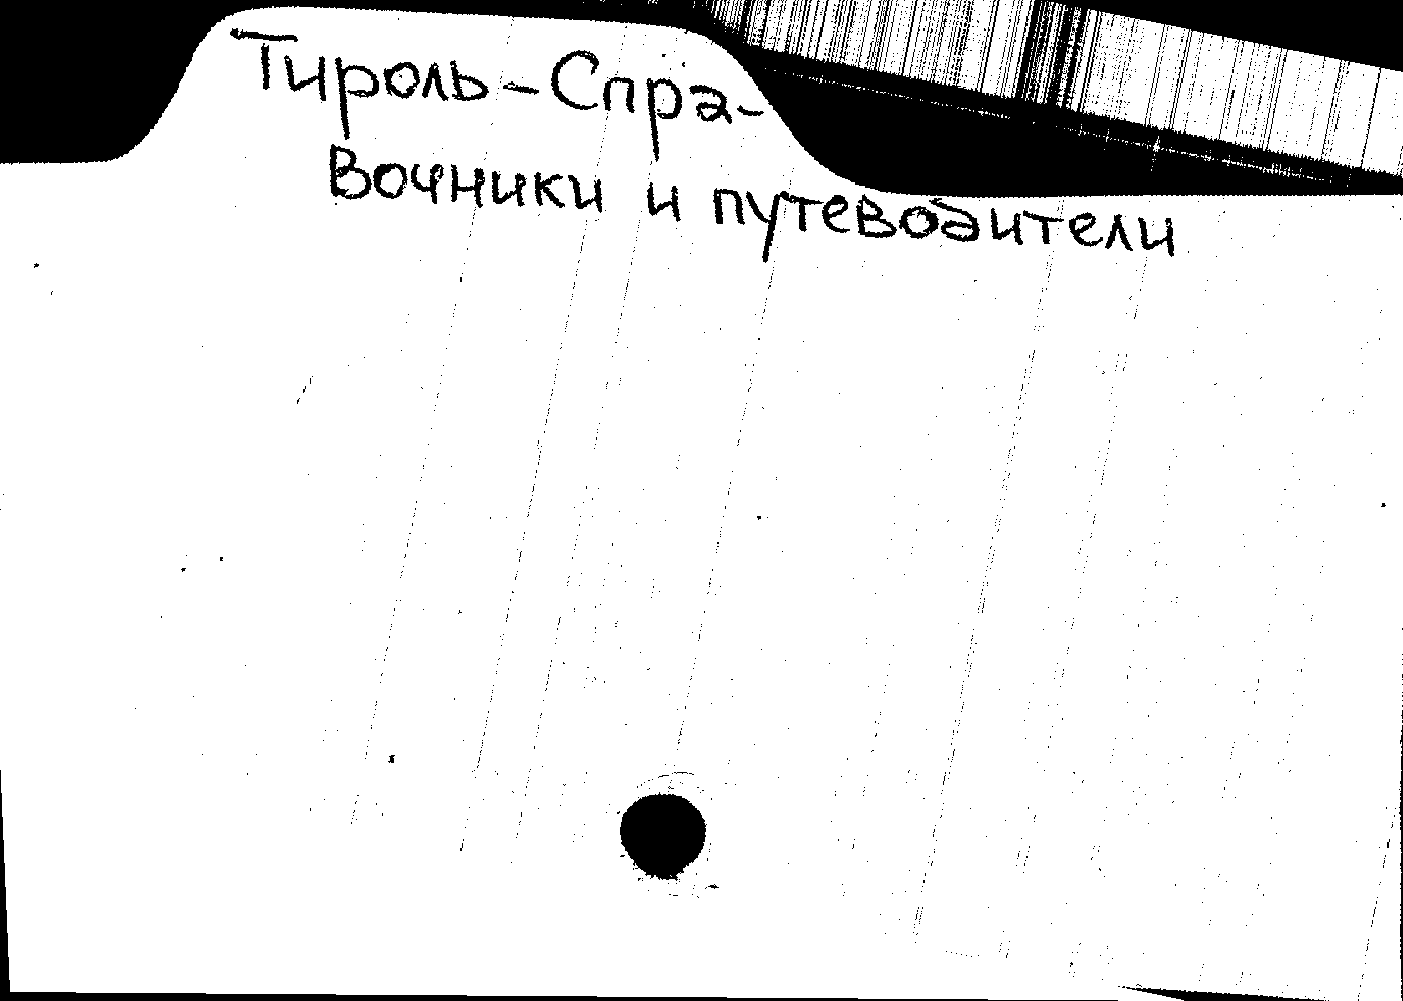 Тироль - Спра-
вочники и путеводители